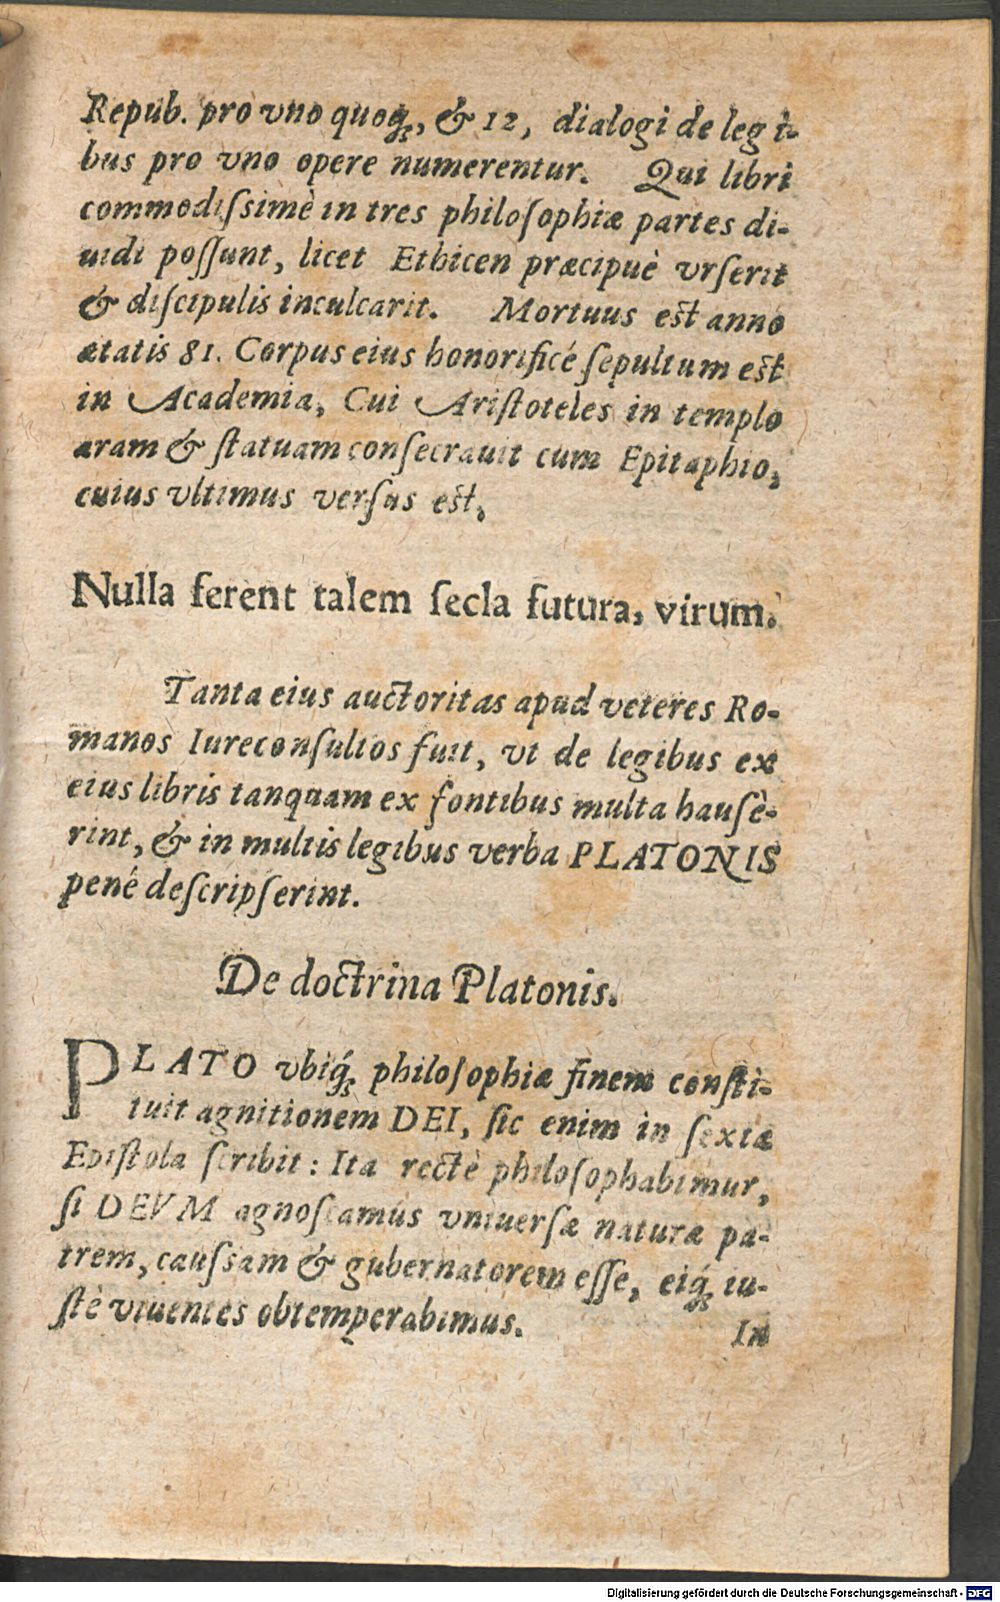 Repub. pro vno quoqꝫ, & 12, dialogi de legi-
bus pro vno opere numerentur. Qui libri
commodiſsimè in tres philoſophiæ partes di-
uidi poſſunt, licet Ethicen præcipuè vrſerit
& diſcipulis inculcarit. Mortuus est anno
ætatis 81. Corpus eius honorificé ſepultum est
in Academia, Cui Ariſtoteles in templo
aram & ſtatuam conſecrauit cum Epitaphio,
cuius vltimus verſus est,
Nulla ferent talem ſecla futura, virum.
Tanta eius auctoritas apud veteres Ro-
manos Iureconſultos fuit, vt de legibus ex
eius libris tanquam ex fontibus multa hauſè-
rint, & in multis legibus verba PLATONIS
pené deſcripſerint.
De doctrina Platonis.
PLATO vbiq́ꝫ philoſophiæ finem conſti-
tuit agnitionem DEI, ſic enim in ſexta
Epiſtola ſcribit: Ita rectè philoſophabimur,
ſi DEVM agnoſcamus vniuerſæ naturæ pa-
trem, cauſsam & gubernatorem eſſe, eiq́ꝫ iu-
ſtè viuentes obtemperabimus.
In
Digitalisierung gefördert durch die Deutsche Forschungsgemeinschaft - DFG